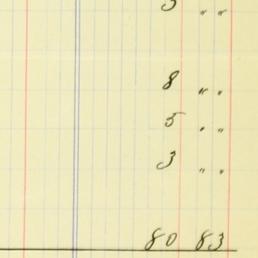 5 " "
8 " "
5 " "
3 " "
80 83